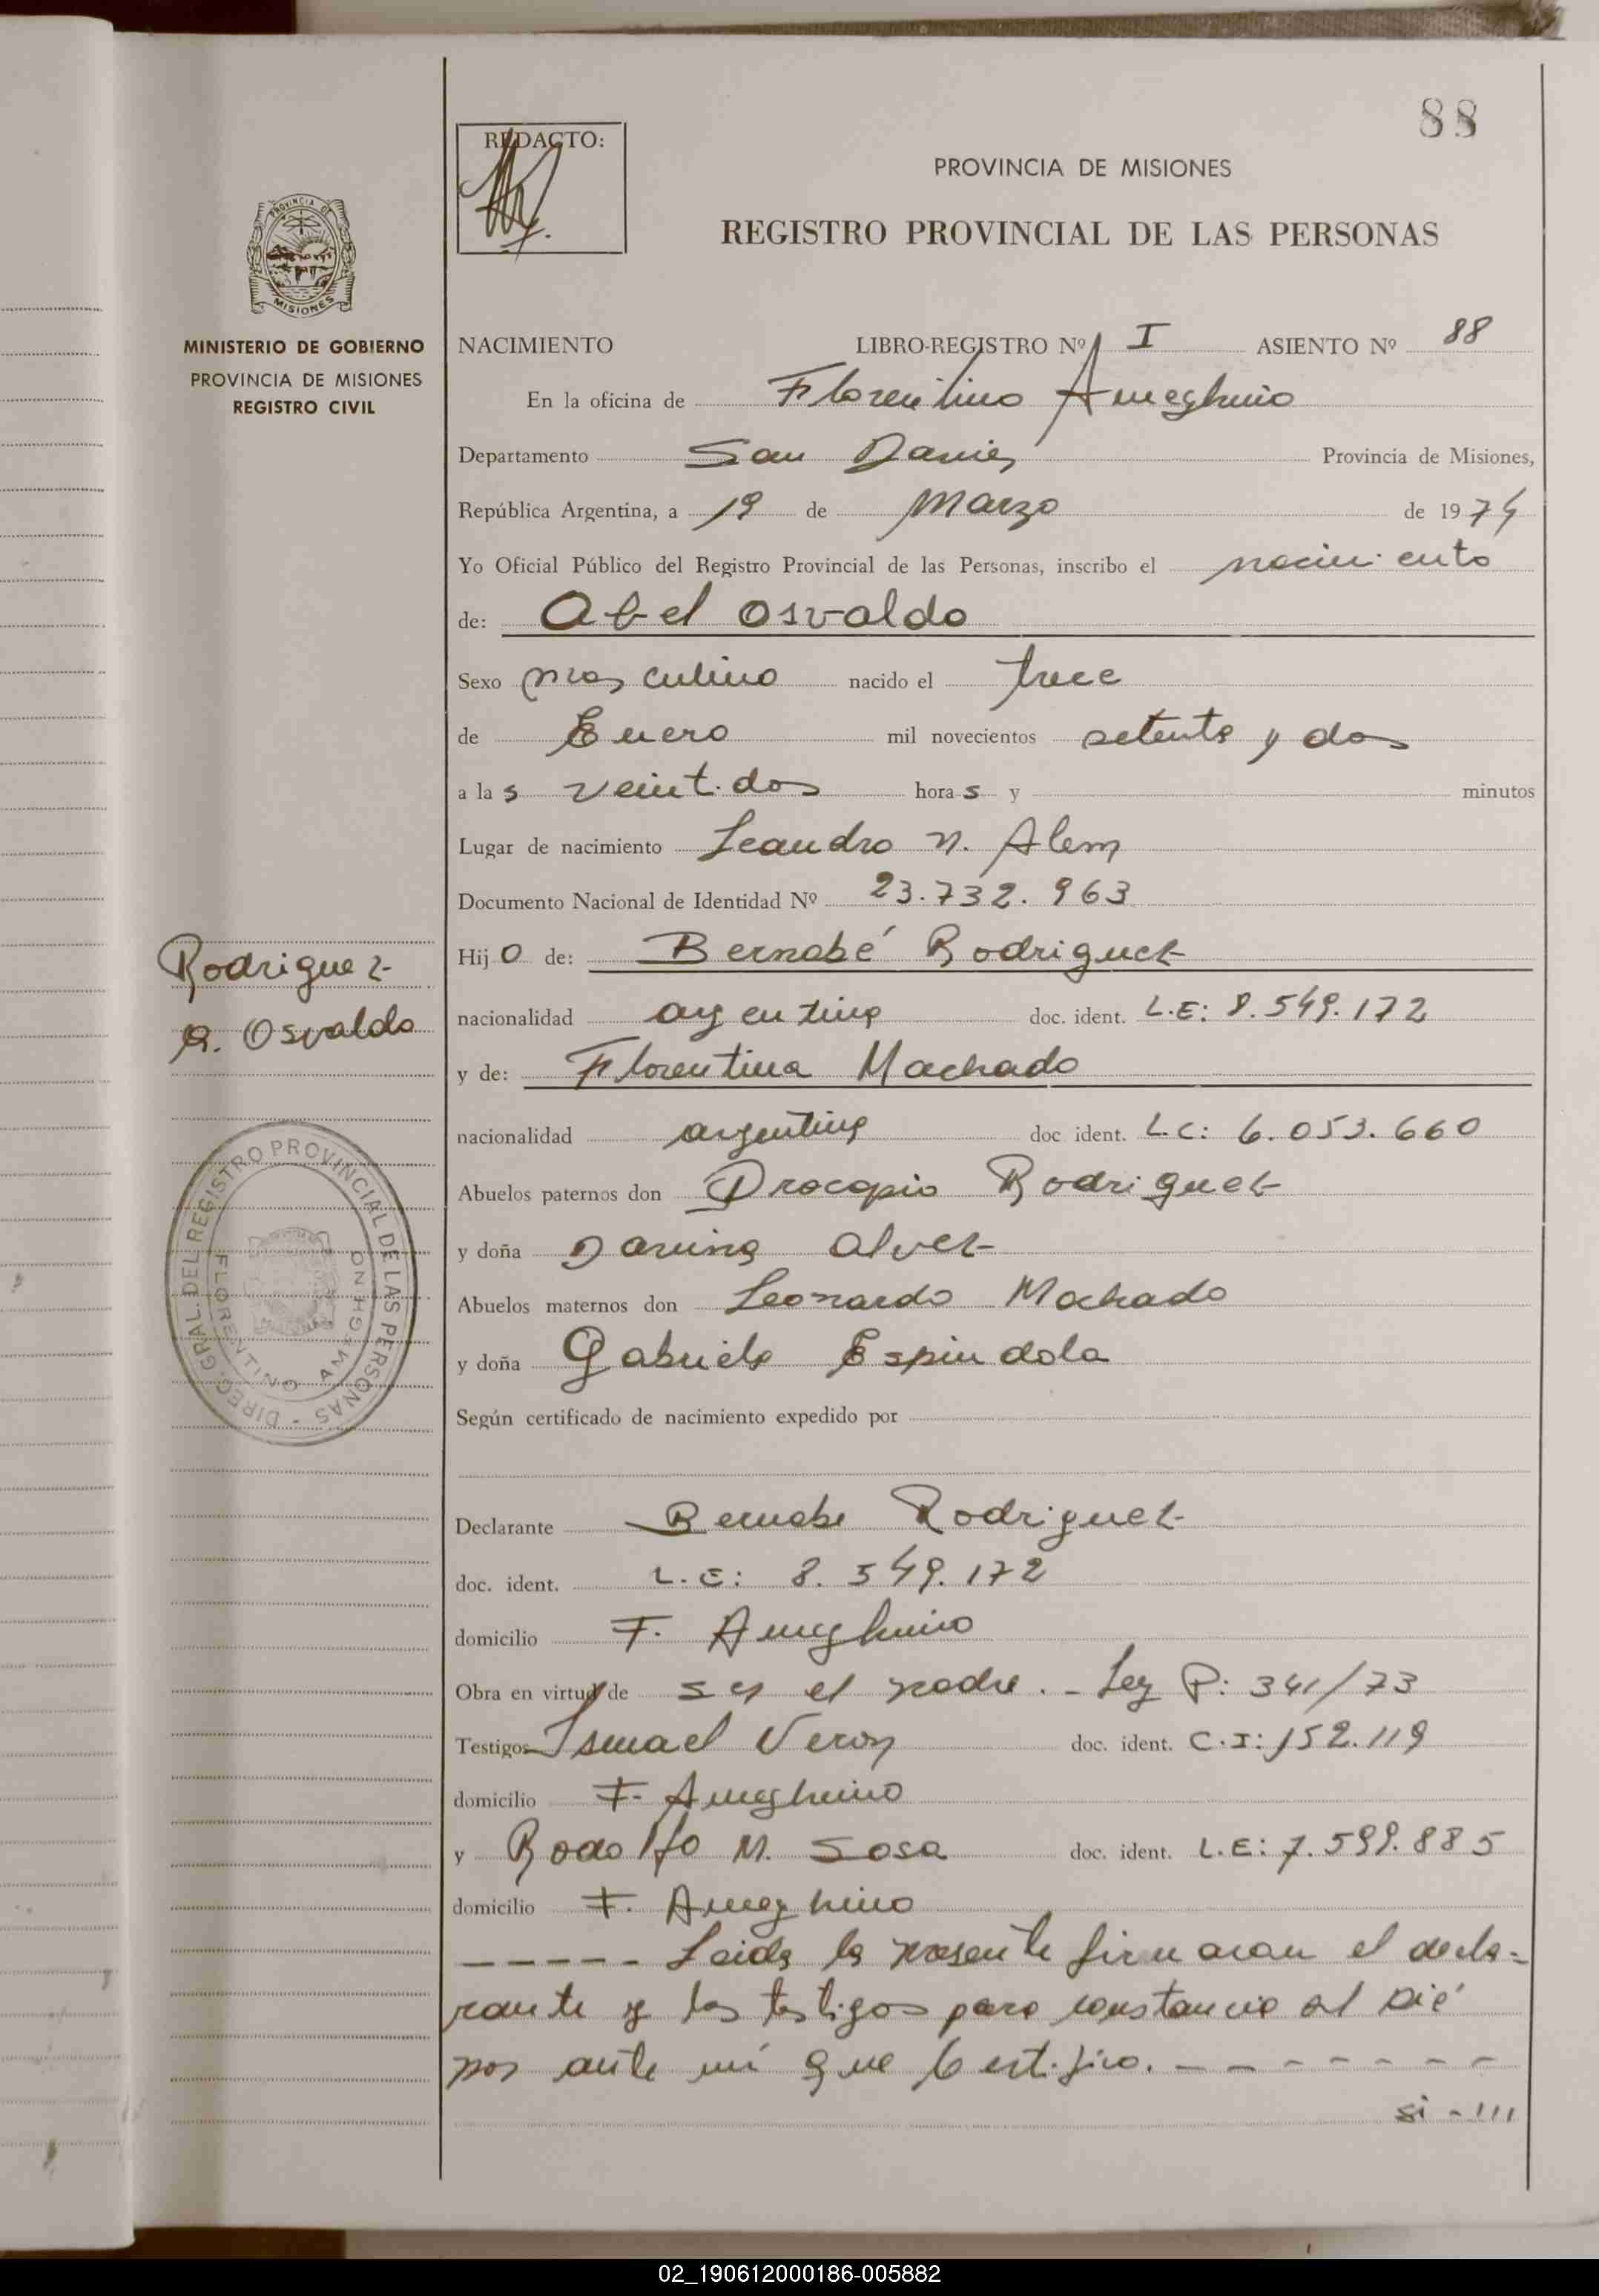 88
REDACTO:
PROVINCIA DE MISIONES
REGISTRO PROVINCIAL DE LAS PERSONAS
PROVINCIA DE
MISIONES
MINISTERIO DE GOBIERNO
PROVINCIA DE MISIONES
REGISTRO CIVIL
NACIMIENTO LIBRO-REGISTRO Nº I ASIENTO Nº 88
En la oficina de Florentino Ameghino
Departamento San Javier Provincia de Misiones,
República Argentina, a 19 de Marzo de 1974
Yo Oficial Público del Registro Provincial de las Personas, inscribo el nacimiento
de: Abel Osvaldo
Sexo masculino nacido el trece
de Enero mil novecientos setenta y dos
a las veintidos horas y minutos
Lugar de nacimiento Leandro N. Alem
Documento Nacional de Identidad Nº 23.732.963
Hijo de: Bernabé Rodriguez
nacionalidad argentina doc. ident. L.E: 8.549.172
y de: Florentina Machado
nacionalidad argentina doc ident. L.C: 6.053.660
Abuelos paternos don Procopio Rodriguez
y doña Alvez
Abuelos maternos don Leonardo Machado
y doña Gabriela Espindola
Según certificado de nacimiento expedido por
Declarante Bernabe Rodriguez
doc. ident. L.E: 8.549.172
domicilio F. Ameghino
Obra en virtud de ser el padre. - Ley P: 341/73
Testigos Ismael Veron doc. ident. C.I: 152.119
domicilio F. Ameghino
y Rodolfo M. Sosa doc. ident. L.E: 7.599.885
domicilio F. Ameghino
----- Leida la presente firmaran el decla-
rante y los testigos para constancia al pié
por ante mi que Certifico. - - - - - - -
si - 111
Rodriguez
A. Osvaldo
DIREC. GRAL. DEL REGISTRO PROVINCIAL DE LAS PERSONAS -
FLORENTINO AMEGHINO
02_190612000186-005882